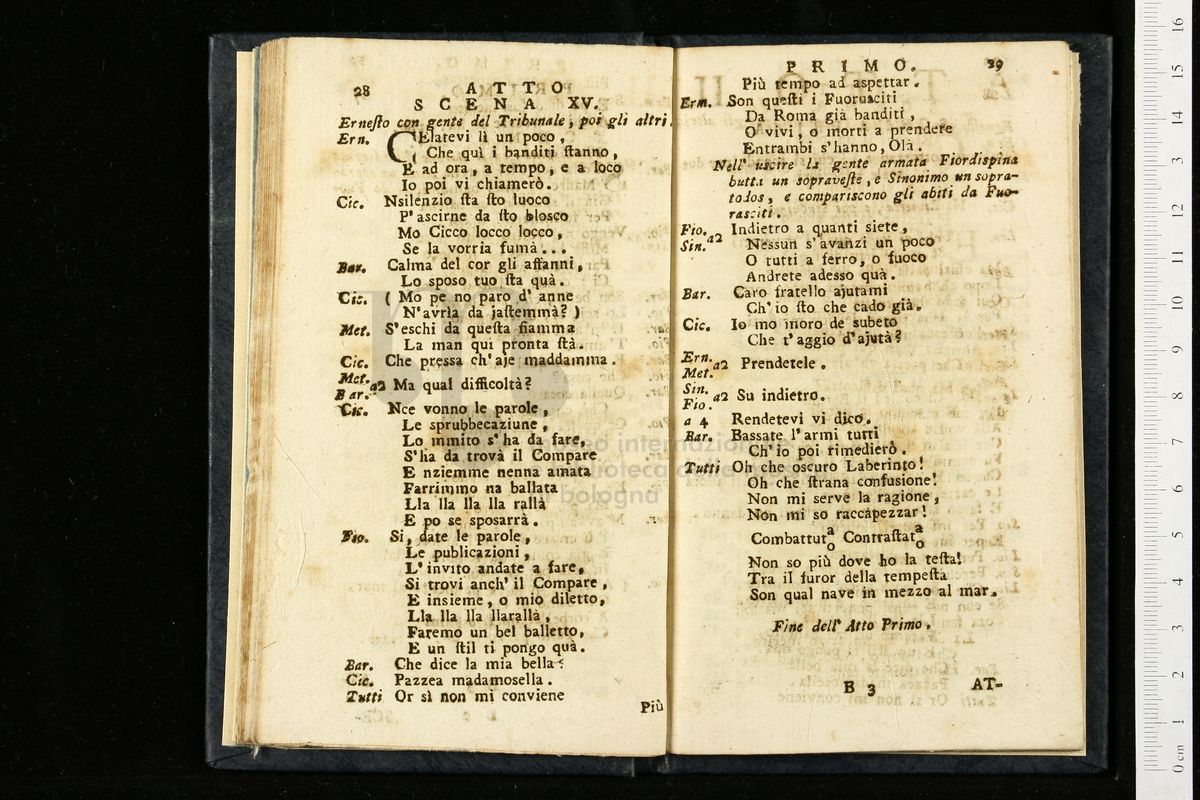 28 ATTO
SCENA XV.
Ernesto con gente del Tribunale, poi gli altri.
Ern. CElatevi lì un poco,
Che quì i banditi stanno,
E ad ora, a tempo, e a loco
Io poi vi chiamerò.
Cic. Nsilenzio sta sto luoco
P'ascirne da sto blosco
Mo Cicco locco locco,
Se la vorria fumà...
Bar. Calma del cor gli affanni,
Lo sposo tuo sta quà.
Cic. ( Mo pe no paro d'anne
N'avria da jastemmà? )
Met. S'eschi da questa fiamma
La man qui pronta stà.
Cic. Che pressa ch'aje maddamma.
Met. Bar. a2 Ma qual difficoltà?
Cic. Nce vonno le parole,
Le sprubbecaziune,
Lo mmito s'ha da fare,
S'ha da trovà il Compare
E nziemme nenna amata
Farrimmo na ballata
Lla lla lla lla rallà
E po se sposarrà.
Fio. Si, date le parole,
Le publicazioni,
L'invito andate a fare,
Si trovi anch'il Compare,
E insieme, o mio diletto,
Lla lla lla llarallà,
Faremo un bel balletto,
E un stil ti pongo quà.
Bar. Che dice la mia bella?
Cic. Pazzea madamosella.
Tutti Or sì non mi conviene
Più
PRIMO. 29
Più tempo ad aspettar.
Ern. Son questi i Fuorusciti
Da Roma già banditi,
O' vivi, o morti a prendere
Entrambi s'hanno, Olà.
Nell' uscire la gente armata Fiordispina
butta un sopraveste, e Sinonimo un sopra-
todos, e compariscono gli abiti da Fuo-
rasciti.
Fio. Sin. a2 Indietro a quanti siete,
Nessun s'avanzi un poco
O tutti a ferro, o fuoco
Andrete adesso quà.
Bar. Caro fratello ajutami
Ch'io sto che cado già.
Cic. Io mo moro de subeto
Che t'aggio d'ajutà?
Ern. Met. a2 Prendetele.
Sin. Fio. a2 Su indietro.
a 4 Rendetevi vi dico.
Bar. Bassate l'armi tutti
Ch'io poi rimedierò.
Tutti Oh che oscuro Laberinto!
Oh che strana confusione!
Non mi serve la ragione,
Non mi so raccapezzar!
Combattut a o Contrastat a o
Non so più dove ho la testa!
Tra il furor della tempesta
Son qual nave in mezzo al mar.
Fine dell' Atto Primo.
B 3 AT-
museo internazionale
e biblioteca della musica
bologna
0 cm 1 2 3 4 5 6 7 8 9 10 11 12 13 14 15 16